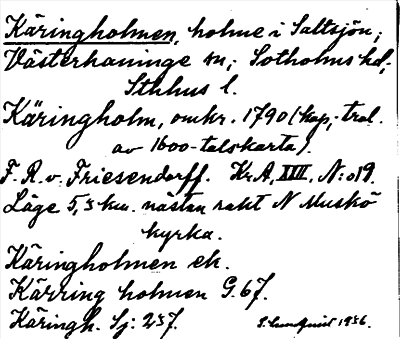 Käringholmen, holme i Saltsjön;
Västerhaninge sn; Sotholms hd,
Sthlms l.
Käringholm, omkr. 1790 (kop. tral.
av 1600-talskarta).
F. R. v. Friesendorff. Kr.A, XIII, N:o 19.
Läge 5,5 km. nästan rakt N Muskö
kyrka.
Käringholmen ek.
Kärring holmen G. 67.
Käringh. Sj: 257.
S. Lundquist 1936.